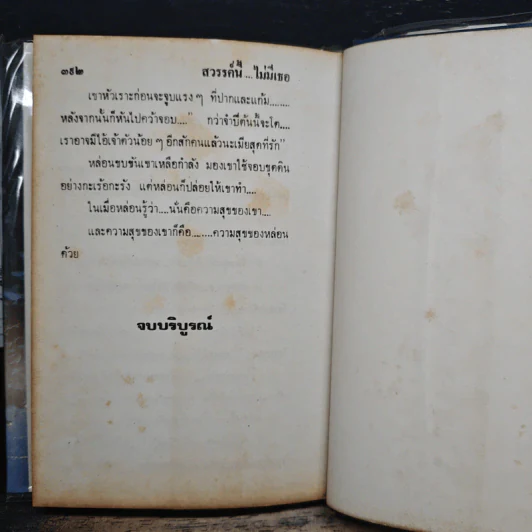 ๓๕๒ สวรรค์นี้...ไม่มีเธอ
เขาหัวเราะก่อนจะจูบแรง ๆ ที่ปากและแก้ม........
หลังจากนั้นก็หันไปคว้าจอบ...." กว่าจำปีต้นนี้จะโต....
เราอาจมีไอ้เจ้าตัวน้อย ๆ อีกสักคนแล้วนะเมียสุดที่รัก"
หล่อนขบขันเขาเหลือกำลัง มองเขาใช้จอบขุดดิน
อย่างกะเร้อกะรัง แต่หล่อนก็ปล่อยให้เขาทำ....
ในเมื่อหล่อนรู้ว่า....นั่นคือความสุขของเขา....
และความสุขของเขาก็คือ........ความสุขของหล่อน
ด้วย
จบบริบูรณ์